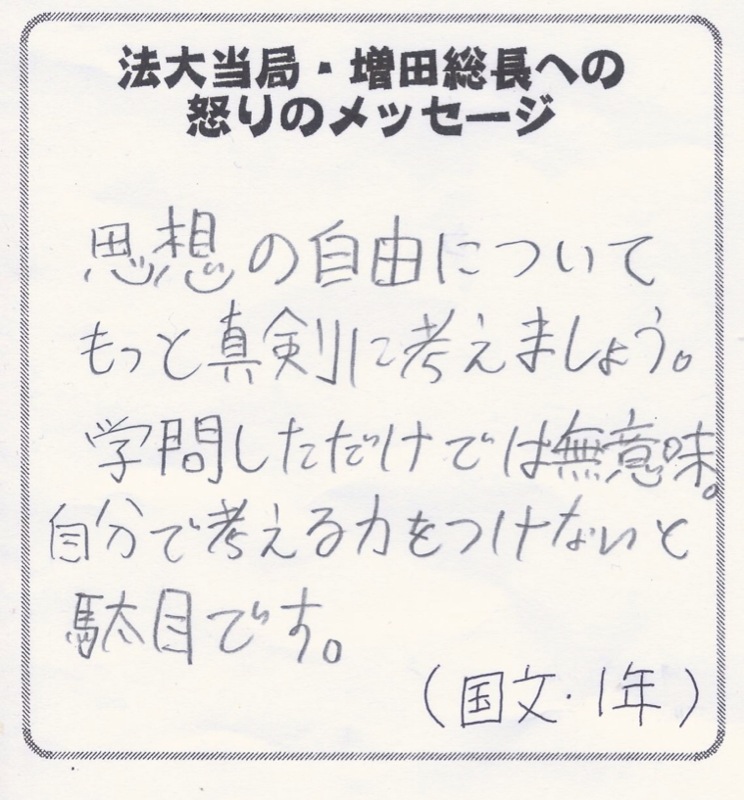 法大当局・増田総長への
怒りのメッセージ
思想の自由について
もっと真剣に考えましょう。
学問しただけでは無意味。
自分で考える力をつけないと
駄目です。
(国文・1年)